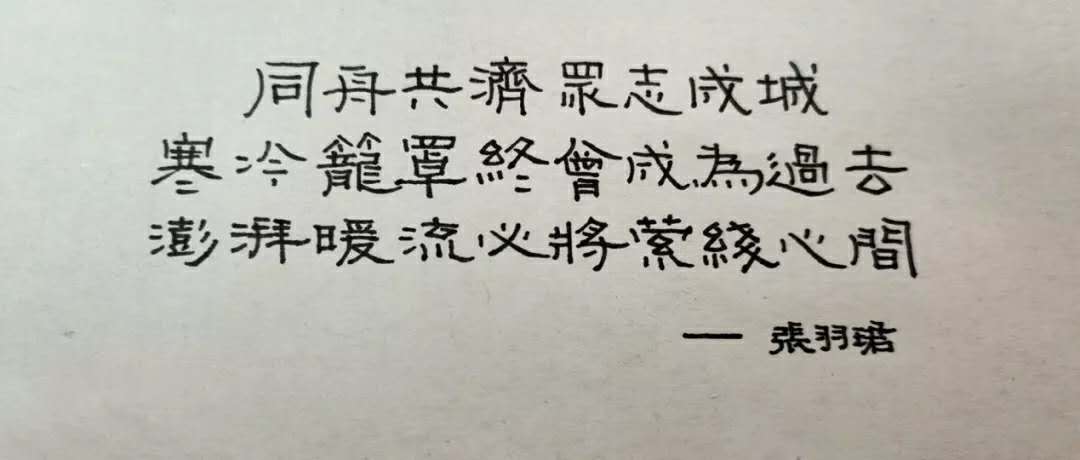 同舟共濟眾志成城
寒冷籠罩終會成為過去
澎湃暖流必將縈綫心間
— 張羽珺